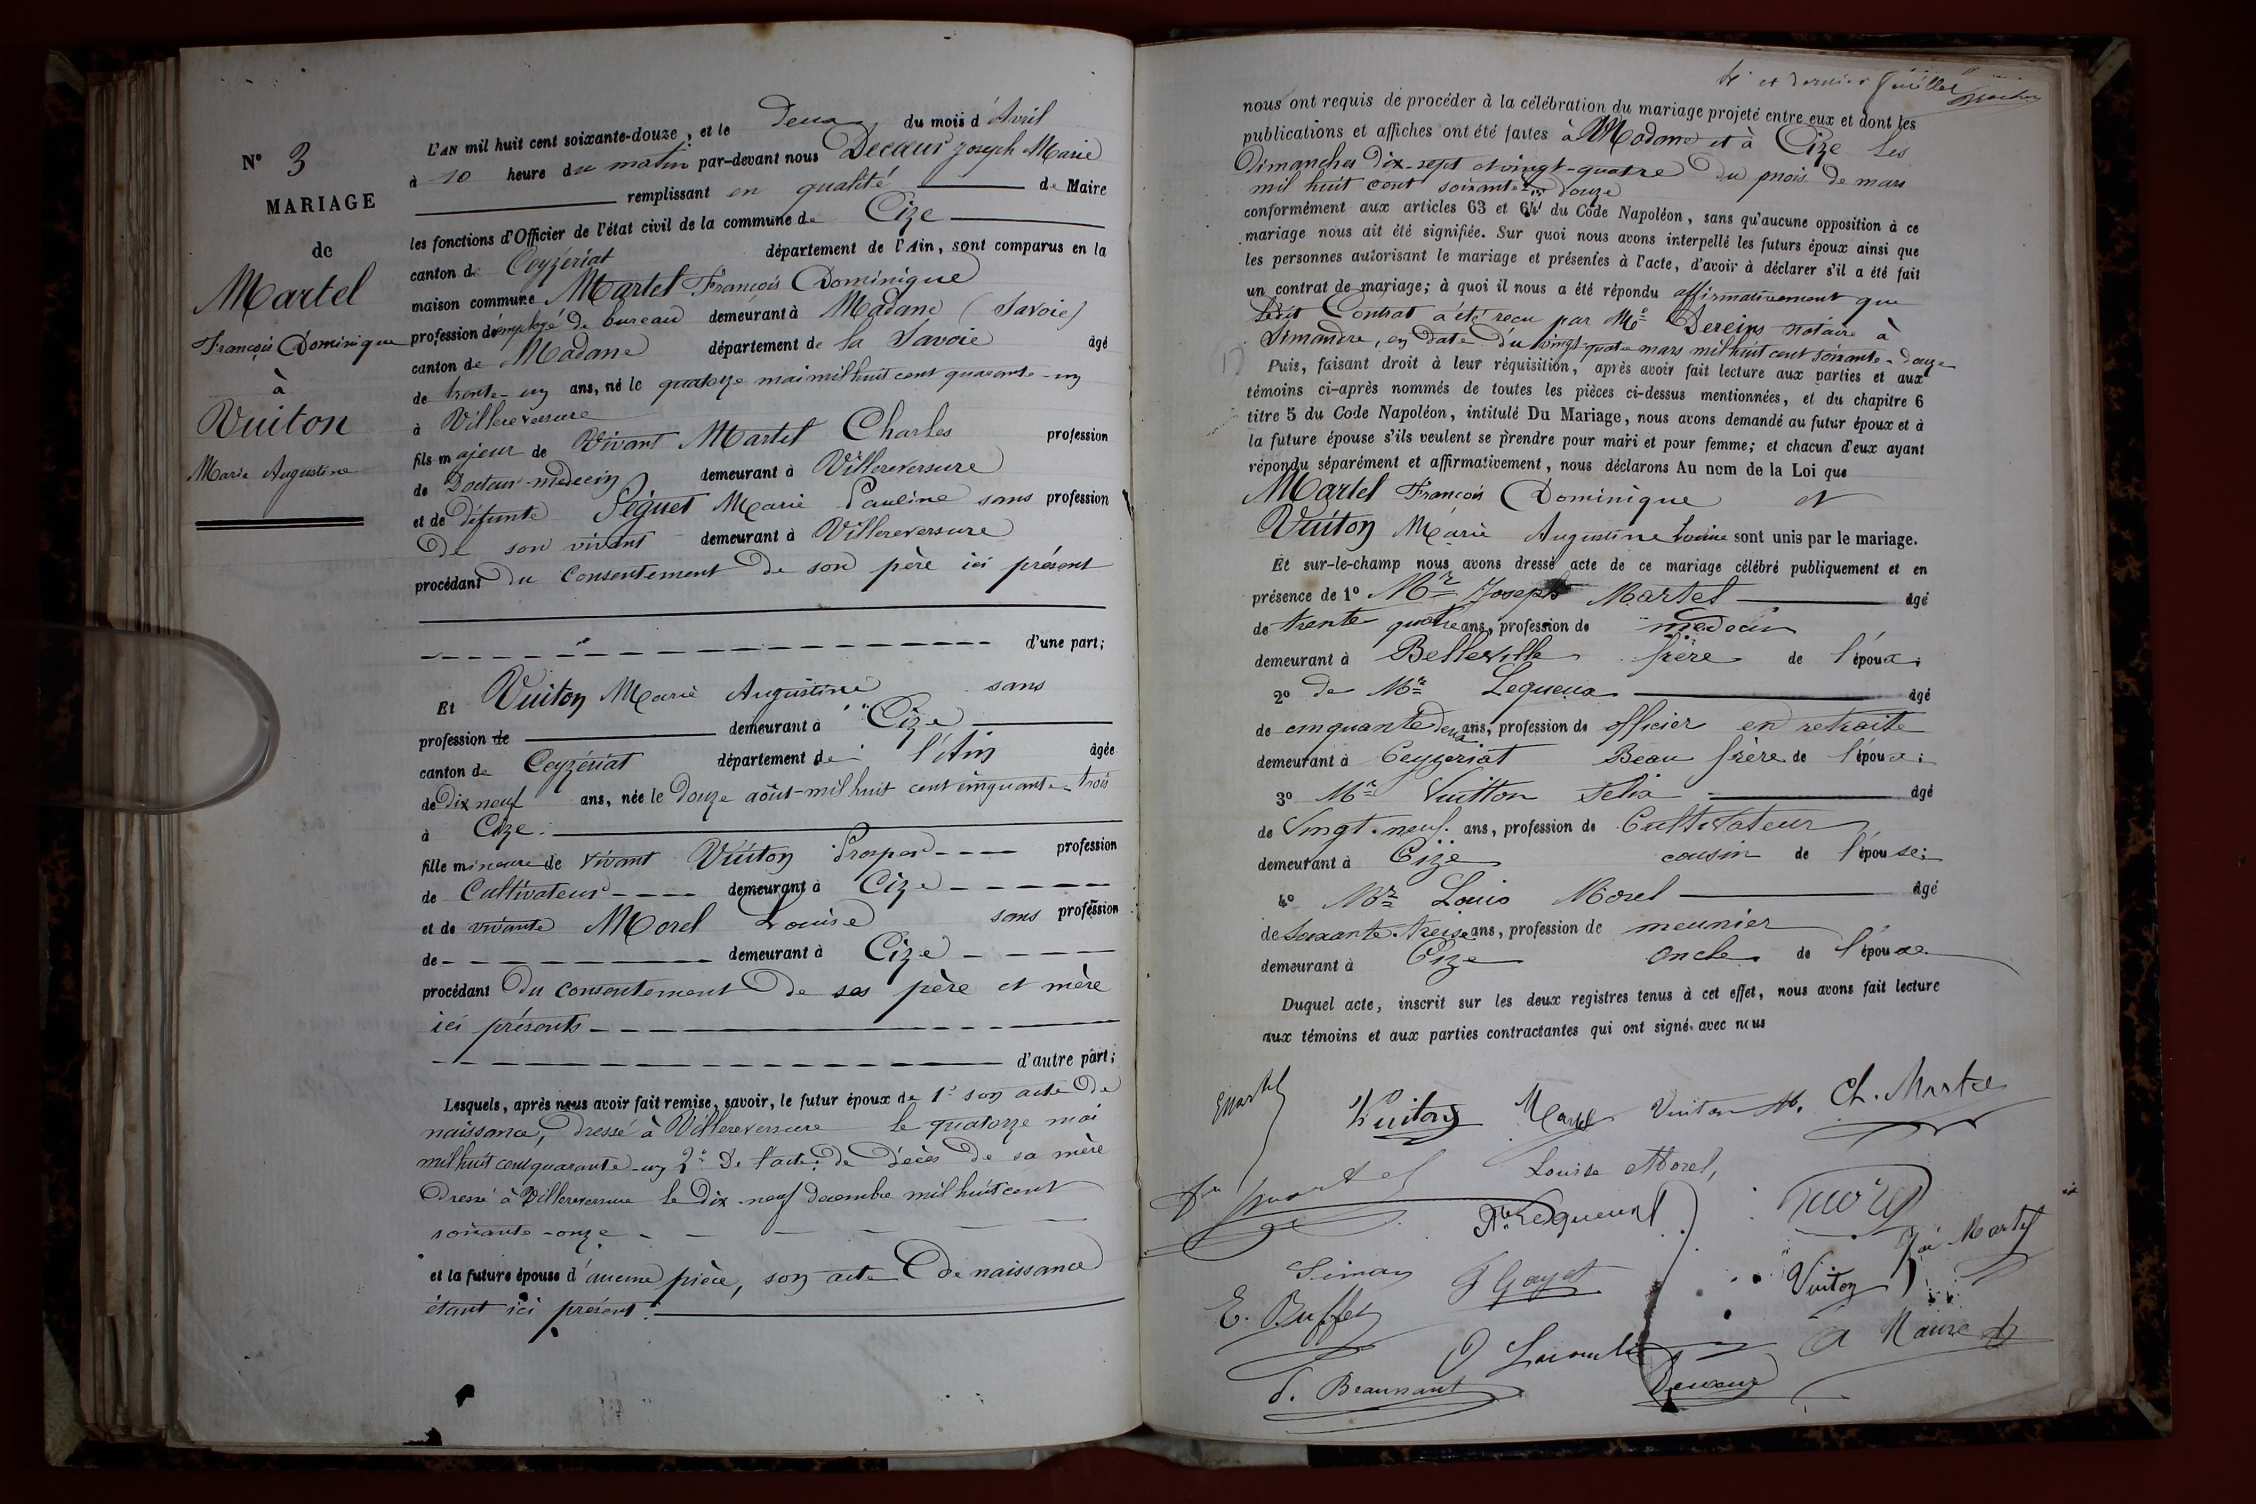 N° 3
MARIAGE
de
Martel
François Dominique
à
Vuiton
Marie Augustine
L'AN mil huit cent soixante-douze, et le deux du mois d'Avril
à 10 heure du matin par-devant nous Decœur Joseph Marie
remplissant en qualité de Maire
les fonctions d'Officier de l'état civil de la commune de Cize
canton de Ceyzériat département de l'Ain, sont comparus en la
maison commune Martel François Dominique
profession d'employé de bureau demeurant à Modane (Savoie)
canton de Modane département de la Savoie âgé
de trente-un ans, né le quatorze mai mil huit cent quarante-un
à Villereversure
fils majeur de Vivant Martel Charles profession
de Docteur-médecin demeurant à Villereversure
et de défunte Séguet Marie Pauline sans profession
De son vivant demeurant à Villereversure
procédant du consentement de son père ici présent
d'une part;
Et Vuiton Marie Augustine sans
profession de demeurant à Cize
canton de Ceyzériat département de l'Ain âgée
de Dix neuf ans, née le Douze août mil huit cent cinquante-trois
à Cize.
fille mineure de vivant Vuiton Prosper profession
de Cultivateur demeurant à Cize
et de vivante Morel Louise sans profession
de demeurant à Cize
procédant du consentement de ses père et mère
ici présents
d'autre part;
Lesquels, après nous avoir fait remise, savoir, le futur époux de 1° son acte de
naissance, Dressé à Villereversure le quatorze mai
mil huit cent quarante-un 2° De l'acte de décès de sa mère
Dressé à Villereversure le Dix-neuf decembre mil huit cent
soixante-onze
et la future épouse d'aucune pièce, son acte de naissance
étant ici présent.
et dernier feuillet
nous ont requis de procéder à la célébration du mariage projeté entre eux et dont les
publications et affiches ont été faites à Modane et à Cize les
Dimanches Dix-sept et vingt-quatre du mois de mars
mil huit cent soixante Douze
conformément aux articles 63 et 64 du Code Napoléon, sans qu'aucune opposition à ce
mariage nous ait été signifiée. Sur quoi nous avons interpellé les futurs époux ainsi que
les personnes autorisant le mariage et présentes à l'acte, d'avoir à déclarer s'il a été fait
un contrat de mariage; à quoi il nous a été répondu affirmativement que
ledit Contrat a été reçu par Me Dereins notaire à
Simandre, en date du vingt-quatre mars mil huit cent soixante-douze
Puis, faisant droit à leur réquisition, après avoir fait lecture aux parties et aux
témoins ci-après nommés de toutes les pièces ci-dessus mentionnées, et du chapitre 6
titre 5 du Code Napoléon, intitulé Du Mariage, nous avons demandé au futur époux et à
la future épouse s'ils veulent se prendre pour mari et pour femme; et chacun d'eux ayant
répondu séparément et affirmativement, nous déclarons Au nom de la Loi que
Martel François Dominique et
Vuiton Marie Augustine sont unis par le mariage.
Et sur-le-champ nous avons dressé acte de ce mariage célébré publiquement et en
présence de 1° Mr Joseph Martel âgé
de trente quatre ans, profession de médecin
demeurant à Belleville frère de l'époux;
2° de Mr Lequeux âgé
de cinquante deux ans, profession de officier en retraite
demeurant à Ceyzeriat Beau frère de l'époux;
3° Mr Vuitton Felix âgé
de Vingt-neuf. ans, profession de Cultivateur
demeurant à Cize cousin de l'épouse;
4° Mr Louis Morel âgé
de soixante-treize ans, profession de meunier
demeurant à Cize oncle de l'épouse
Duquel acte, inscrit sur les deux registres tenus à cet effet, nous avons fait lecture
aux témoins et aux parties contractantes qui ont signé avec nous
Martel Vuiton Morel Vuiton M. Ch. Martel
Louise Morel,
Martel
Lequeux Morel
Martel
Simon F Goyet Vuiton
E. Buffet
Decœur